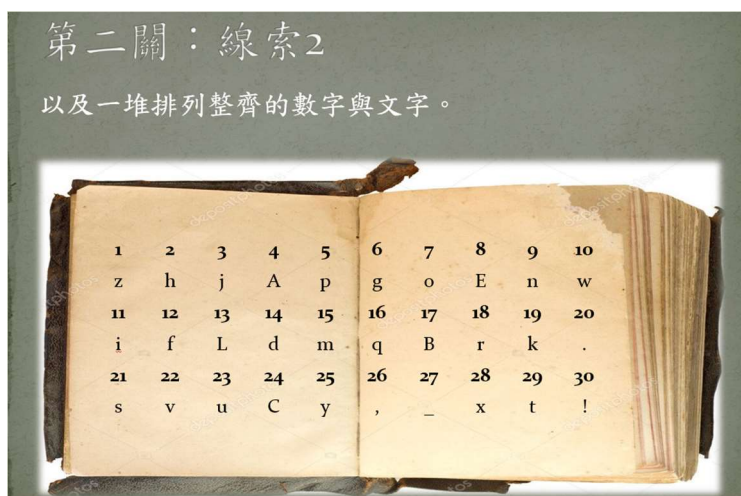 第二關：線索2
以及一堆排列整齊的數字與文字。
1 2 3 4 5 6 7 8 9 10
z h j A p g o E n w
11 12 13 14 15 16 17 18 19 20
i f L d m q B r k .
21 22 23 24 25 26 27 28 29 30
s v u C y , _ x t !